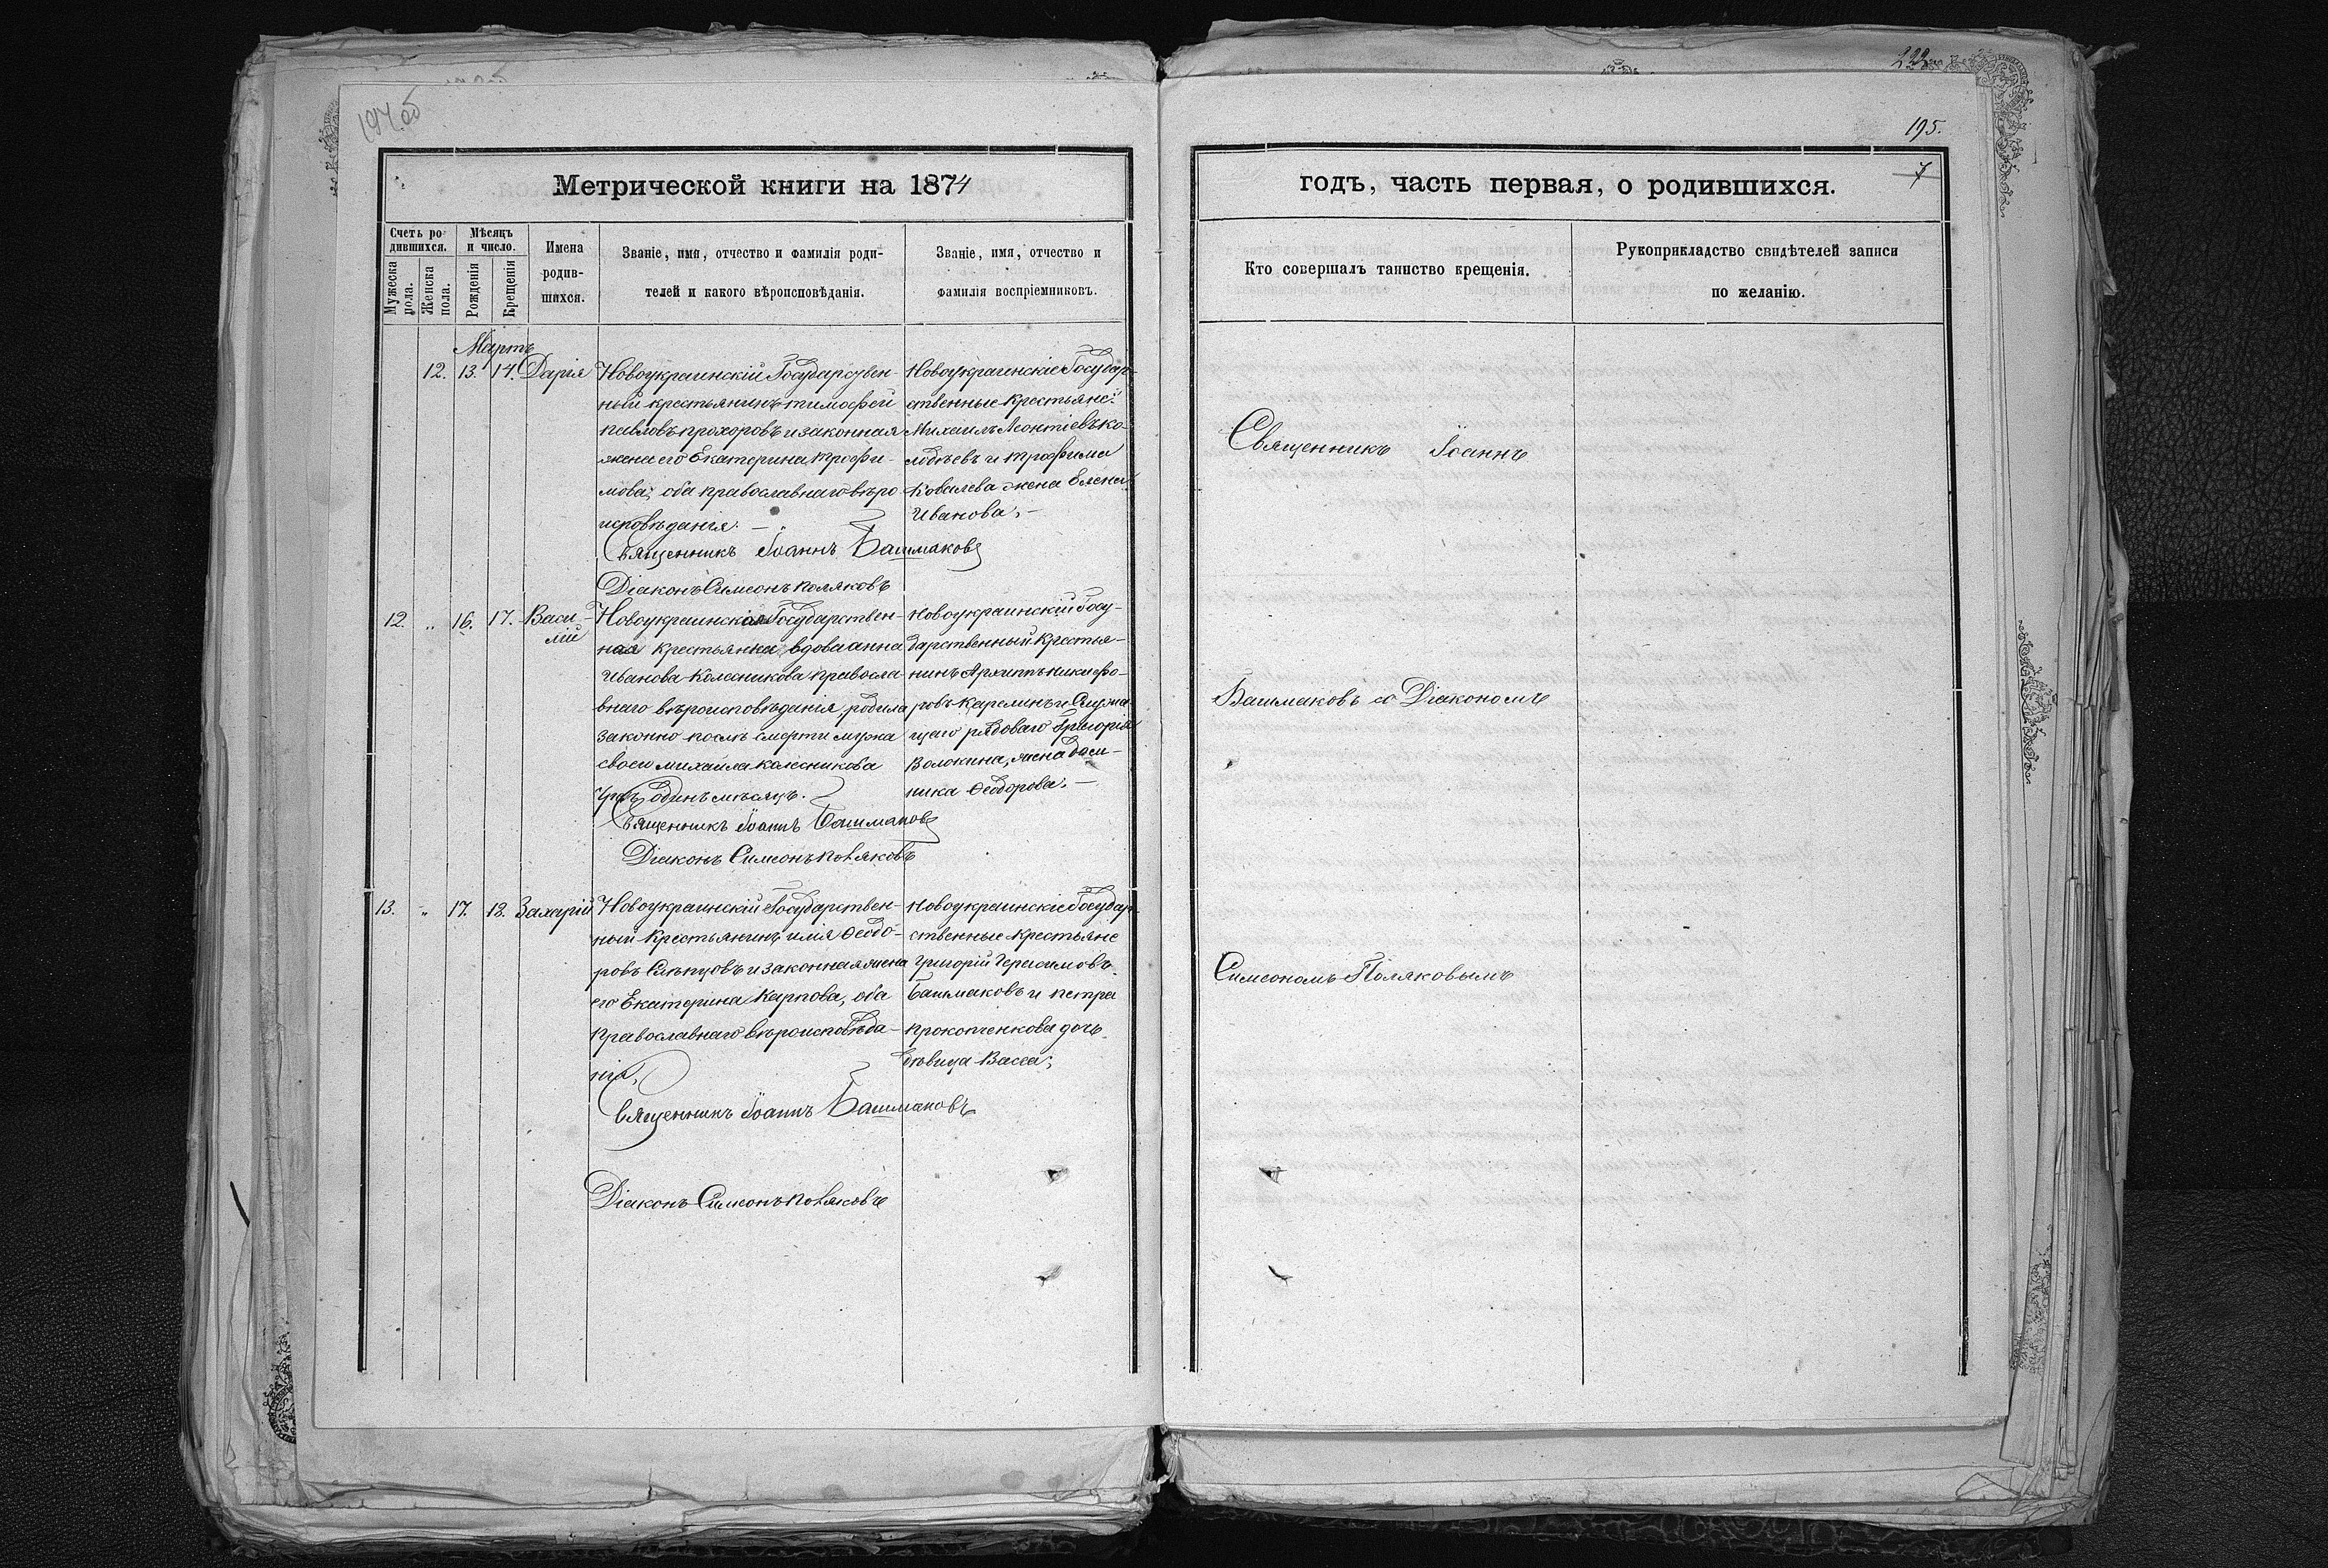 194об
222
195.
7
Метрической книги на 1874
годъ, часть первая, о родившихся.
Счетъ ро-
дившихся.
Мужеска
пола.
Женска
пола.
Мѣсяцъ
и число.
Рожденія
Крещенія
Имена
родив-
шихся.
Званіе, имя, отчество и фамилія роди-
телей и какого вѣроисповѣданія.
Званіе, имя, отчество и
фамилія воспріемниковъ.
Кто совершалъ таинство крещенія.
Рукоприкладство свидѣтелей записи
по желанію.
Мартъ
12. 13. 14. Дарія
Новоукраинскій Государствен-
ный крестьянинъ тимофей
павловъ прохоровъ и законная
жена его Екатерина трофи-
мова, оба православнаго вѣро
исповѣданія. —
Священникъ Іоаннъ Башмаковъ
Діаконъ Симеонъ поляковъ
Новоукраинскіе Государ-
ственные крестьяне:
Михаилъ Леонтіевъ ко-
лодѣевъ и трофима
Ковалева жена Елена
Иванова. —
12. „ 16. 17. Васи-
лій
Новоукраинская Государствен-
ная крестьянка, вдова анна
Иванова Колесникова правосла
внаго вѣроисповѣданія, родила
законно послѣ смерти мужа
своего михаила колесникова
чрезъ одинъ мѣсяцъ.
Священникъ Іоаннъ Башмаковъ
Діаконъ Симеонъ поляковъ
новоукраинскій Госу-
дарственный крестья-
нинъ Архиппъ никифо-
ровъ и служа
щаго рядоваго Григорія
Волокина, жена Васи-
лика Феодорова. —
13. „ 17. 18. Захарій
Новоукраинскій Государствен-
ный крестьянинъ илія Феодо-
ровъ Слѣпцовъ и законная жена
его Екатерина Карпова, оба
православнаго вѣроисповѣда-
нія,
Священникъ Іоаннъ Башмаковъ
Діаконъ Симеонъ поляковъ
новоукраинскіе Государ-
ственные крестьяне
Григорій Герасимовъ
Башмаковъ и петра
прокопченкова дочь
дѣвица Васса;
Священникъ Іоаннъ
Башмаковъ со Діакономъ
Симеономъ Поляковымъ